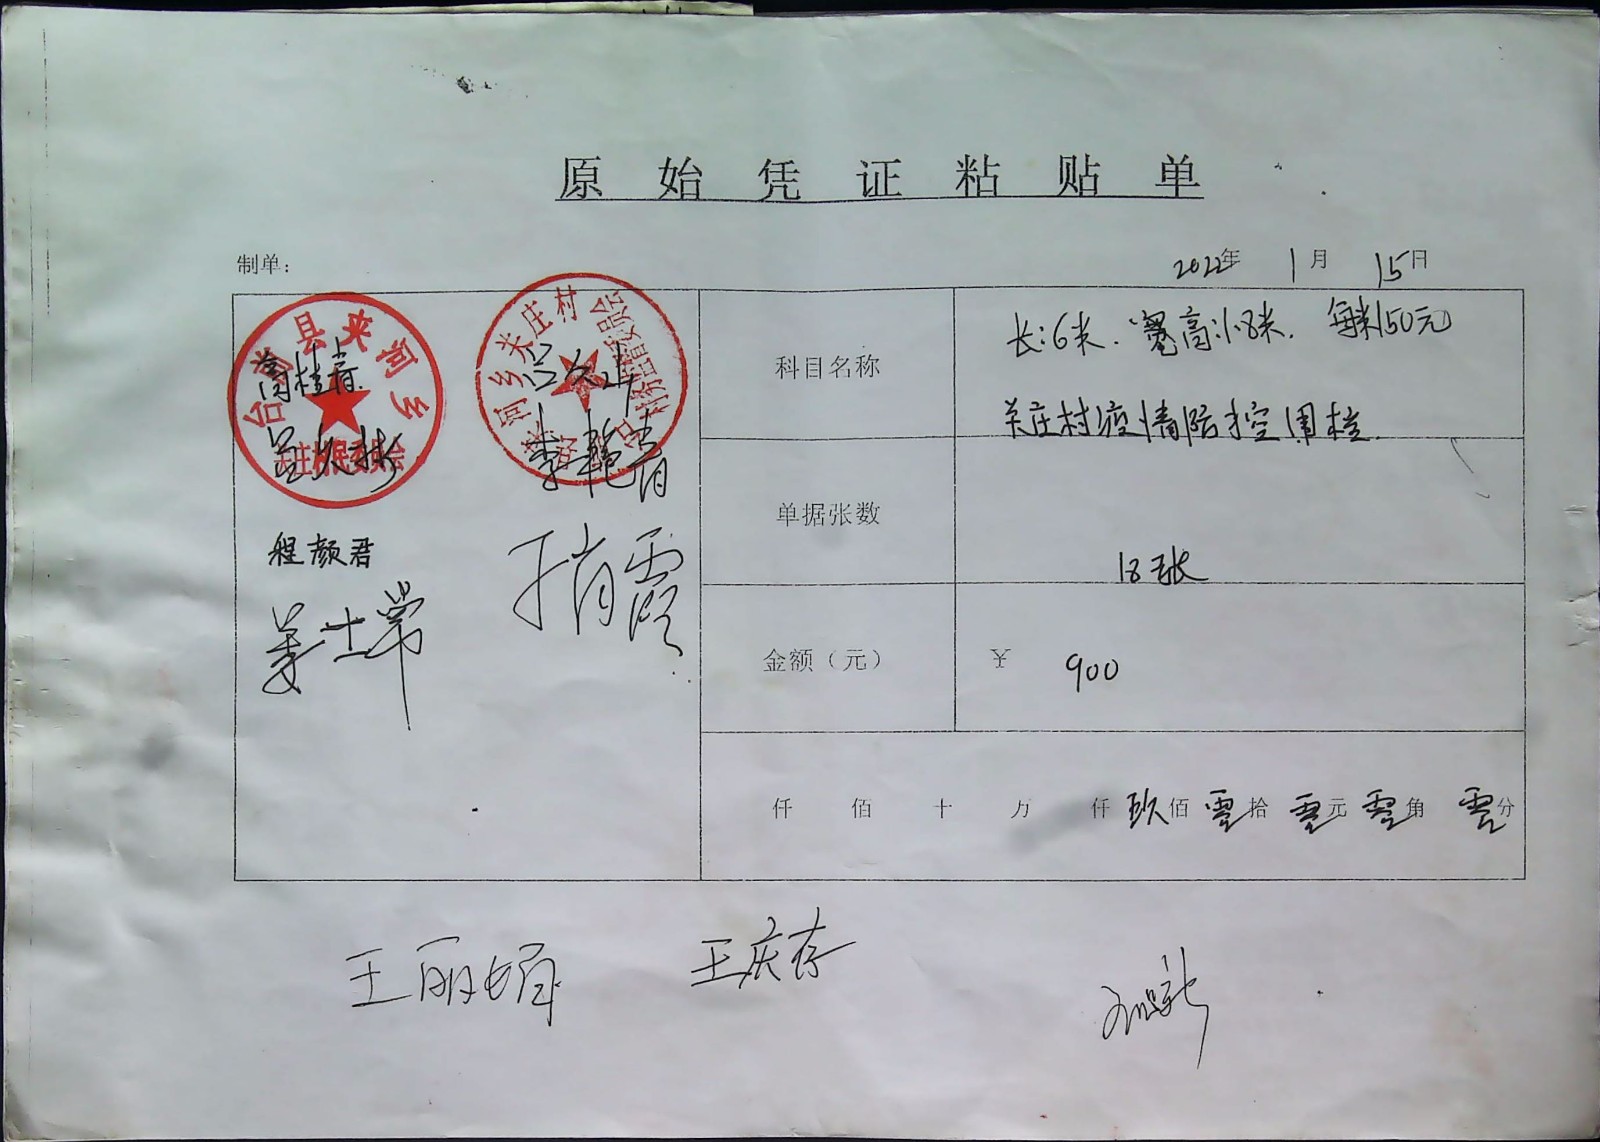 原始凭证粘贴单
制单：
2022年 1月 15日
台前县夹河乡
关庄村村民委员会
夹河乡关庄村
村务监督委员会
李艳青
程颜君
姜士常
科目名称
长:6米. 宽高:1.8米. 每米150元
关庄村疫情防控围栏
单据张数
18张
金额（元）
¥ 900
仟 佰 十 万 仟 玖佰 零拾 零元 零角 零分
王丽娟
王庆存